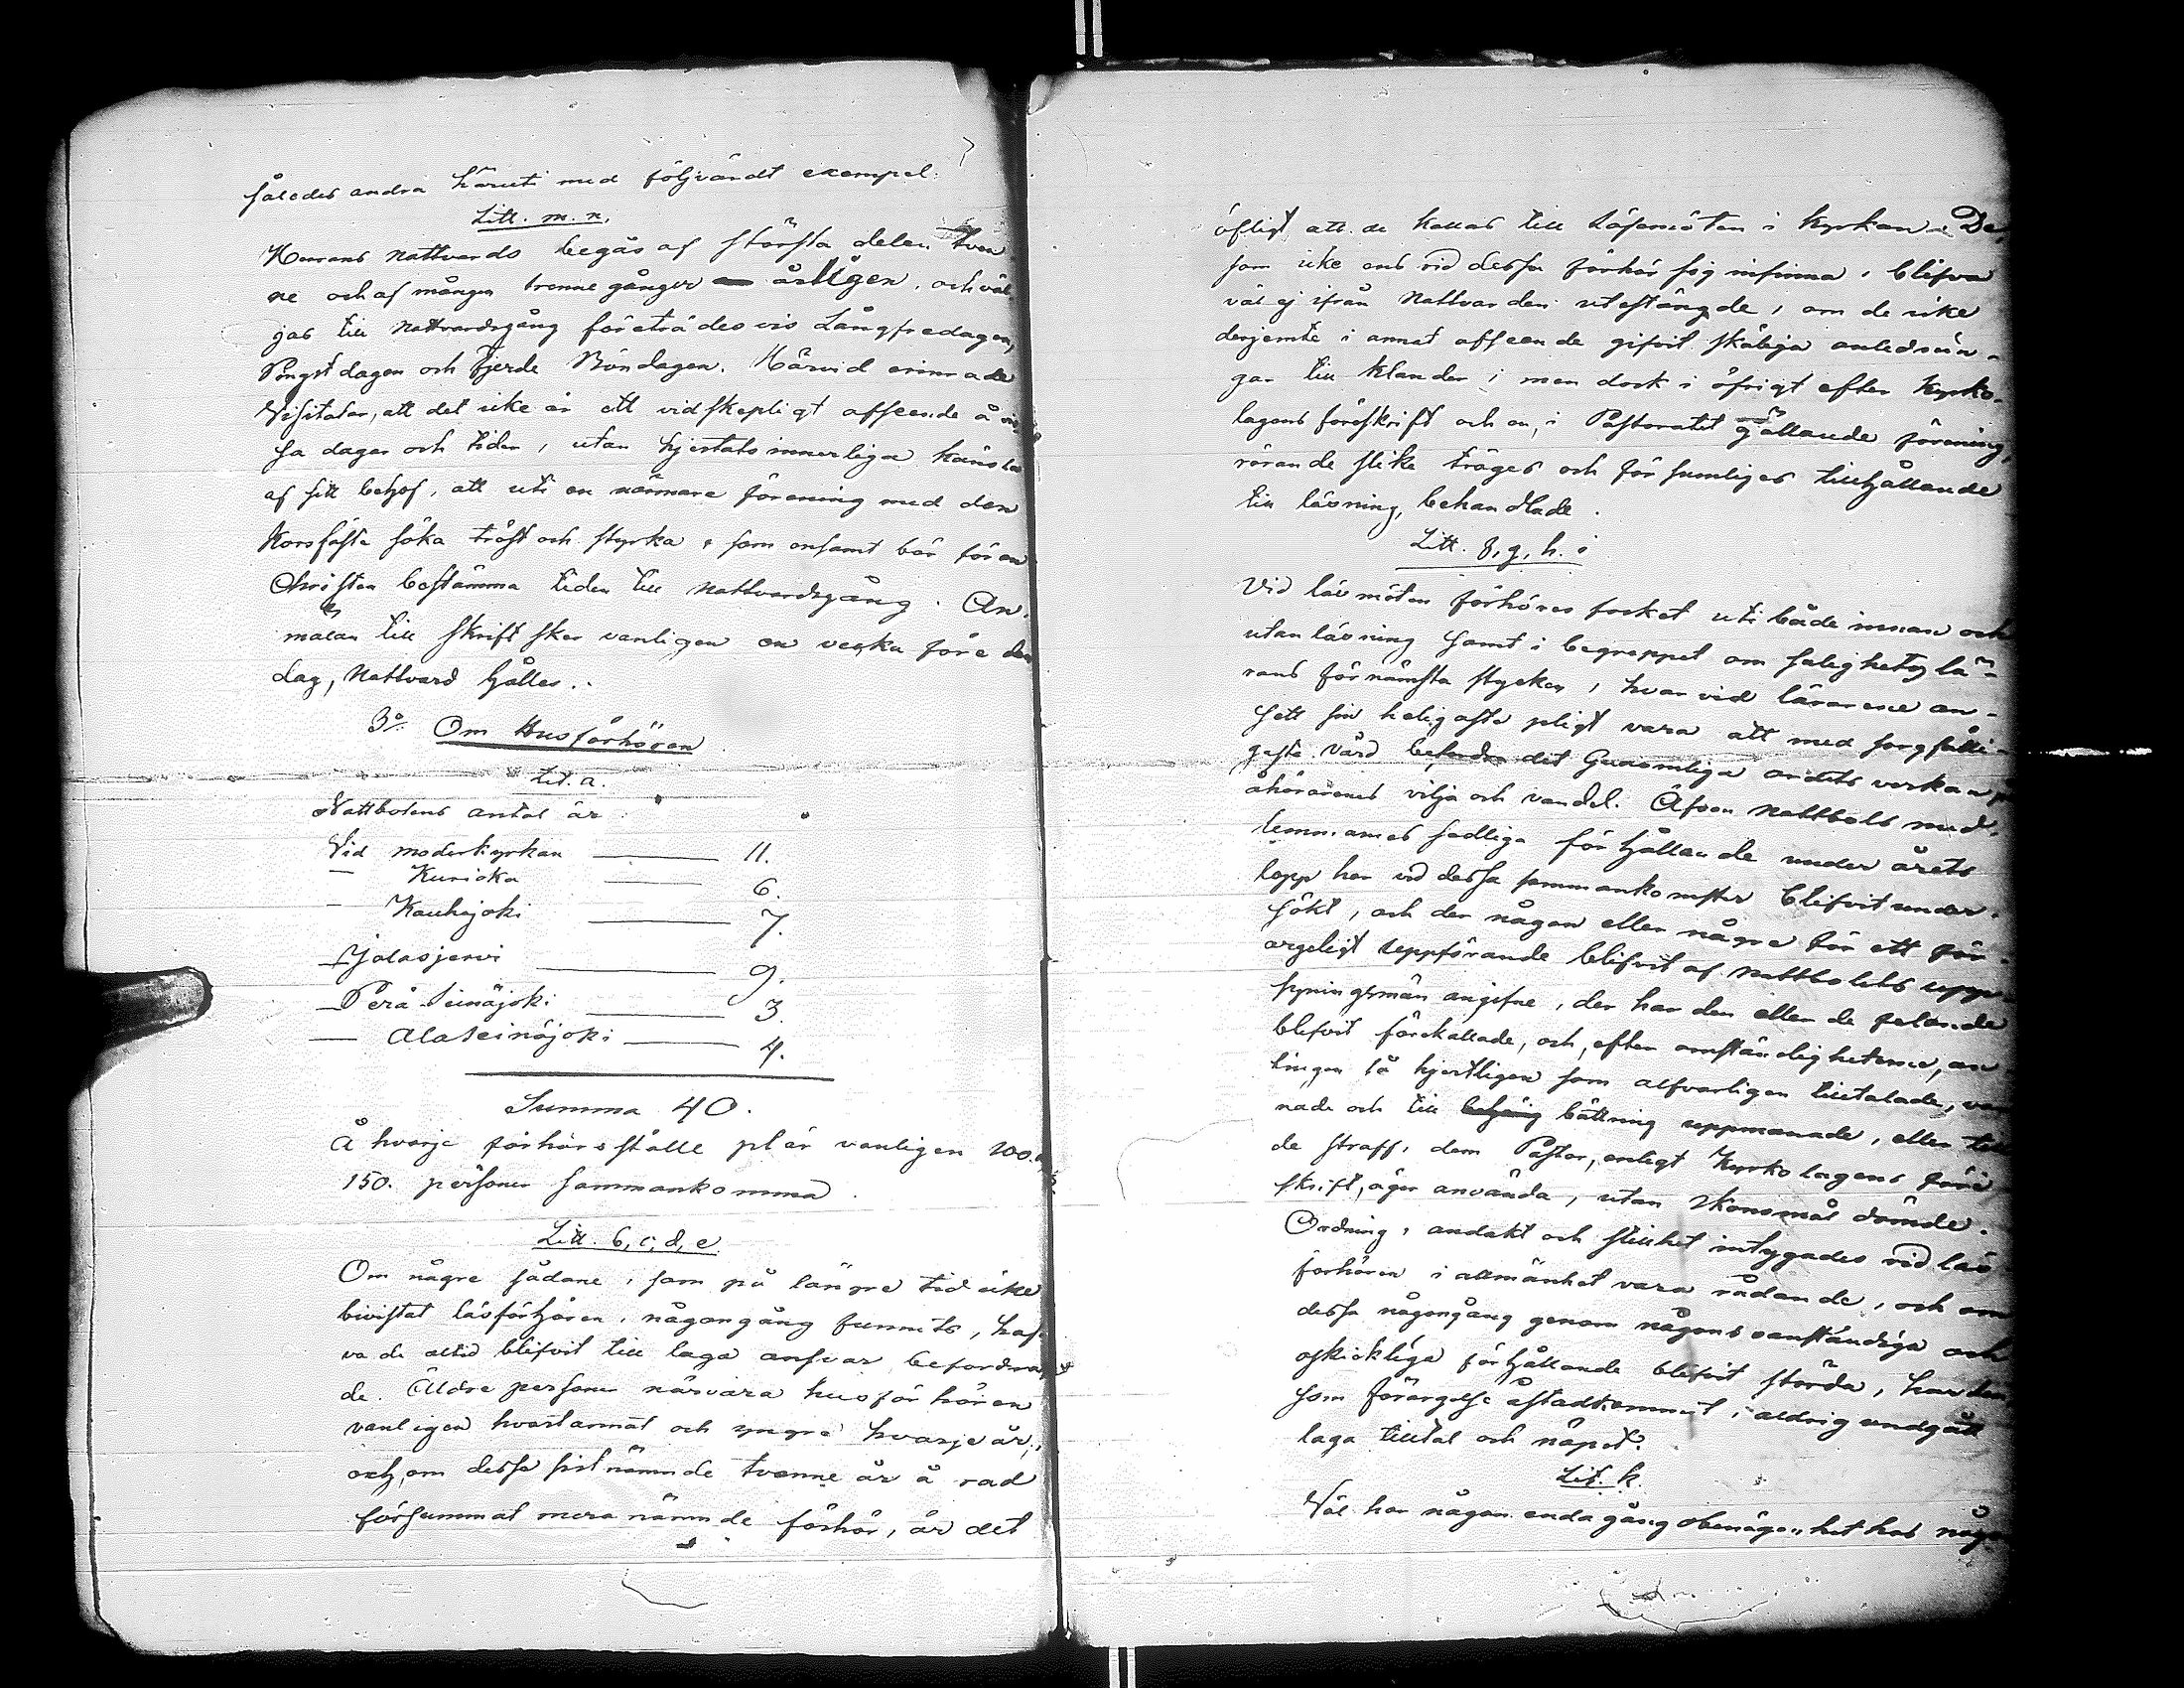 således andra häruti med följvärdt exempel.
Litt. m. n.
Herrans nattvards begås af största delen tven
ne och af mången trenne gånger årligen, och väl
jas till nattvardsgång företrädesvis Långfredagen,
Pingstdagen och Fjerde Böndagen. Härvid erinrade
Visitator, att det icke är ett vidskepligt afseende å vis
sa dagar och tider, utan hjertats innerliga känsla
af sitt behof, att uti en närmare förening med den
Korsfäste söka tröst och styrka, som ensamt bör för en
Christen bestämma tiden till nattvardsgång. An-
mälan till skrift sker vanligen en vecka före den
dag, Nattvard hålles.
3o Om Husförhören
Lit. a.
Nattbolens antal är
Vid moderkyrkan ——— 11.
— Kuricka ——— 6.
— Kauhajoki ——— 7.
— Jalasjervi ——— 9.
— Perä Seinäjoki ——— 3.
— Ala Seinäjoki ——— 4.
Summa 40.
Å hvarje förhörsställe plär vanligen 100 a
150. personer sammankomma.
Litt. b, c, d, e
Om några sådane, som på längre tid icke
bivistat läsförhören, någongång funnits, haf-
va de altid blifvit till laga ansvar befordra-
de. Äldre personer närvara husförhören
vanligen hvartannat och yngre hvarje år,
och, om dessa sistnämnde tvenne år å rad
försummat mera nämnde förhör, är det
öfligt att de kallas till Läsemöten i Kyrkan. De,
som icke ens vid dessa förhör sig infinna, blifva
väl ej ifrån Nattvarden utestängde, om de icke
derjemte i annat afseende gifvit skäliga anlednin-
gar till klander; men dock i öfrigt efter Kyrko-
lagens föreskrift och en, i Pastoratet gällande förening,
rörande slike tröges och försumliges tillhållande
till läsning, behandlade.
Litt. f, g, h. i
Vid läsmöten förhöres folket uti både innan och
utanläsning samt i begreppet om salighetslä-
rans förnämsta stycken, hvarvid lärarene an-
sett sin heligaste pligt vara att med sorgfälli-
gaste vård befordra det Gudomliga ordets verkan på
åhörarenes vilja och vandel. Äfven nattbols med-
lemmarnes sedliga förhållande under årets
lopp har vid dessa sammankomster blifvit under-
sökt, och der någon eller några för ett för-
argeligt uppförande blifvit af nattbolets upp-
syningsmän angifne, der har den eller de felande
blifvit förekallade, och, efter omständigheterne, an
tingen så hjertligen som alfvarligen tilltalade, var
nade och till bättring uppmanade, eller till
de straff, dem Pastor, enligt Kyrkolagens före
skrift, äger använda, utan skonsmål dömde.
Ordning, andakt och stillhet intygades vid läs-
förhören i allmänhet vara rådande, och om
dessa någongång genom någons oanständiga och
oskickliga förhållande blifvit störda, har den,
som förargelse åstadkommit, aldrig undgått
laga tilltal och näpst.
Lit. k.
Väl har någon enda gång obenägenhet hos någon